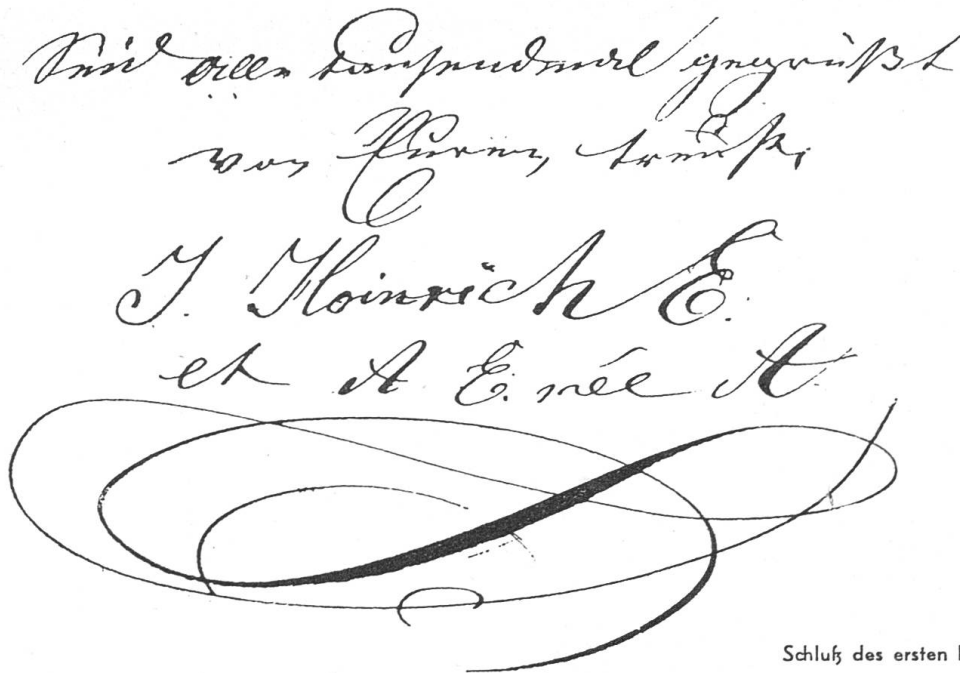 Seid alle tausendmal gegrüßt
von Euren treust.
J. Heinrich E.
et A E. née A
Schluß des ersten